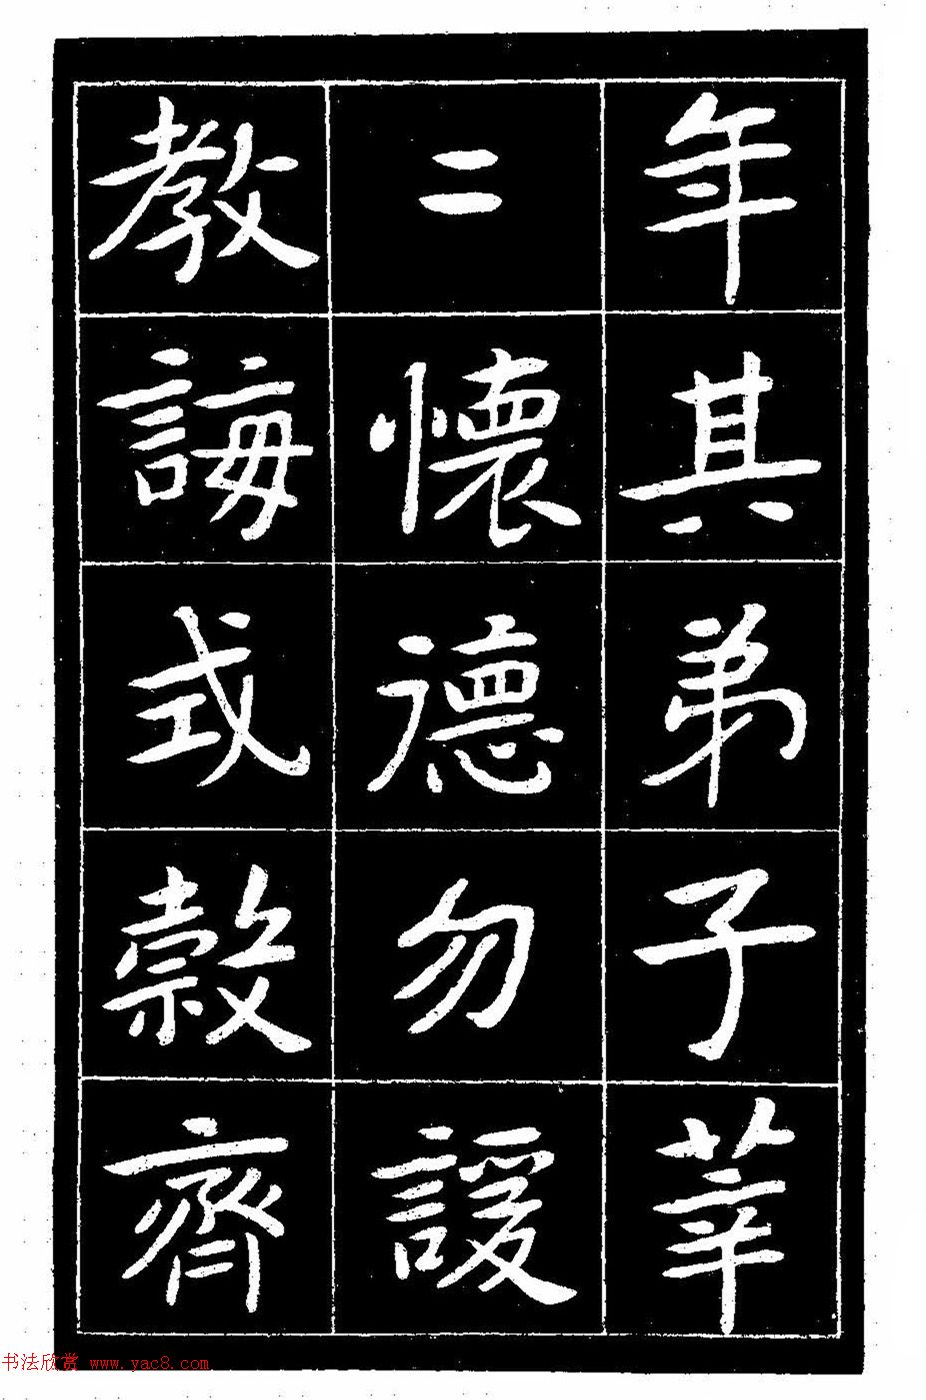 年其弟子莘
二懷德勿諼
教誨式穀齊
书法欣赏 www.yac8.com